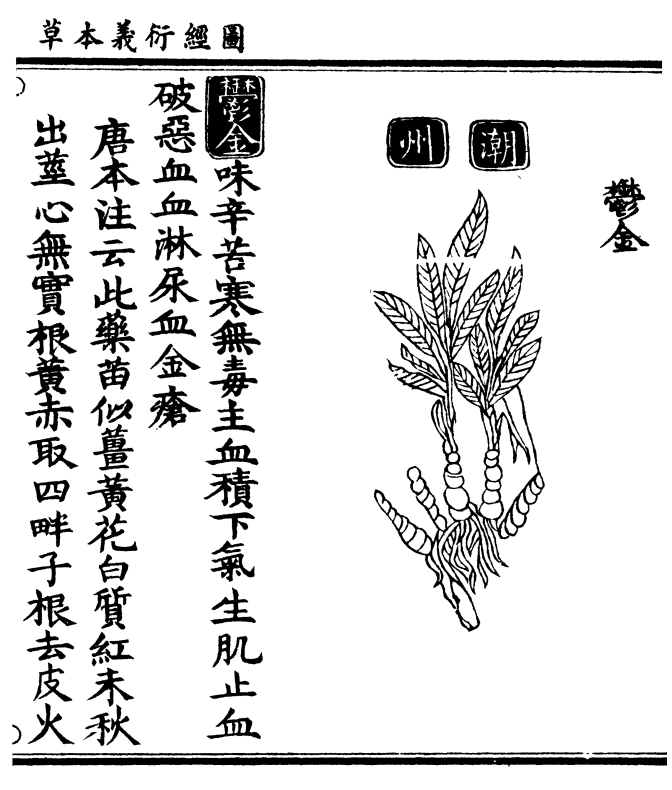 圖經衍義本草
鬱金
潮州
鬱金味辛苦寒無毒主血積下氣生肌止血
破惡血血淋尿血金瘡
唐本注云此藥苗似薑黃花白質紅末秋
出莖心無實根黃赤取四畔子根去皮火